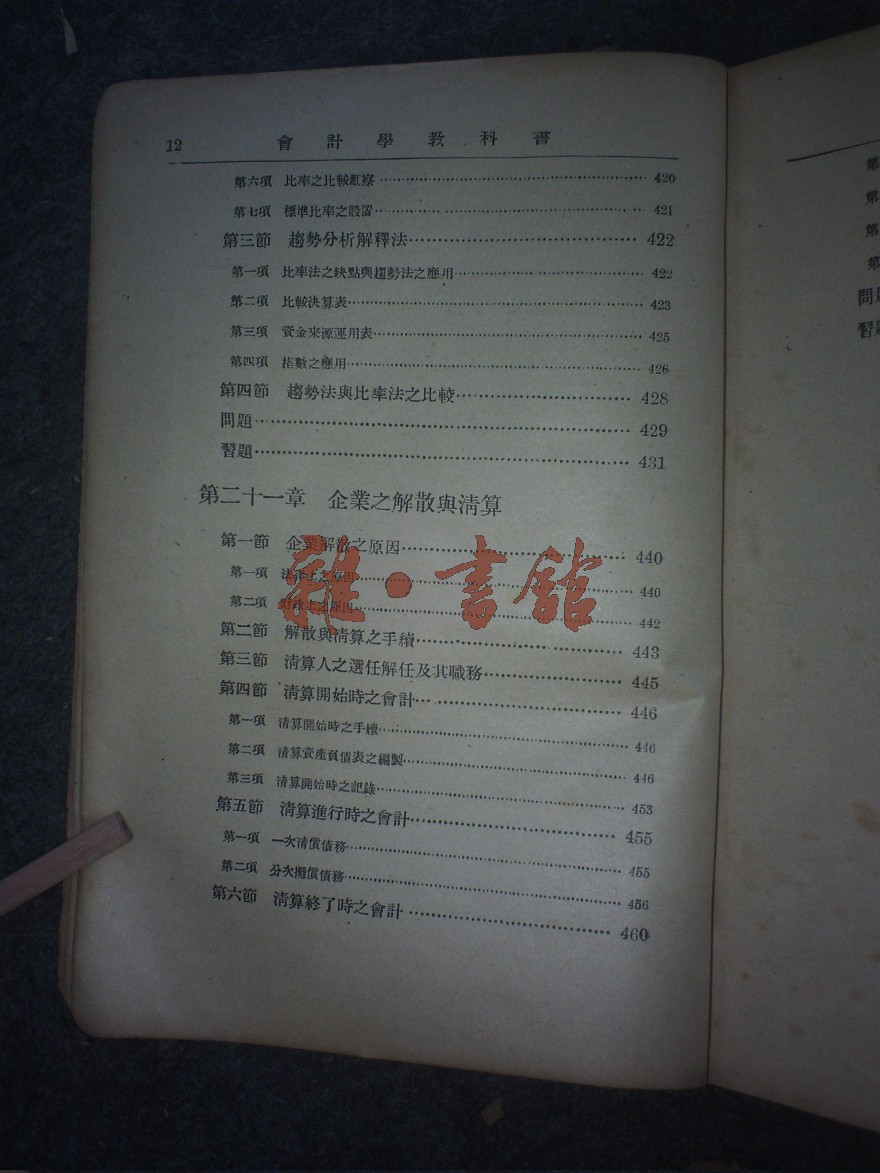 12 會計學教科書
第六項 比率之比較觀察 420
第七項 標準比率之設置 421
第三節 趨勢分析解釋法 422
第一項 比率法之缺點與趨勢法之應用 422
第二項 比較決算表 423
第三項 資金來源運用表 425
第四項 指數之應用 426
第四節 趨勢法與比率法之比較 428
問題 429
習題 431
第二十一章 企業之解散與淸算
第一節 企業解散之原因 440
第一項 法律上之原因 440
第二項 財政上之原因 442
第二節 解散與淸算之手續 443
第三節 淸算人之選任解任及其職務 445
第四節 淸算開始時之會計 446
第一項 淸算開始時之手續 446
第二項 淸算資產負債表之編製 446
第三項 淸算開始時之記錄 453
第五節 淸算進行時之會計 455
第一項 一次淸償債務 455
第二項 分次攤償債務 456
第六節 淸算終了時之會計 460
雜·書館
第
第
第
第
問題
習題